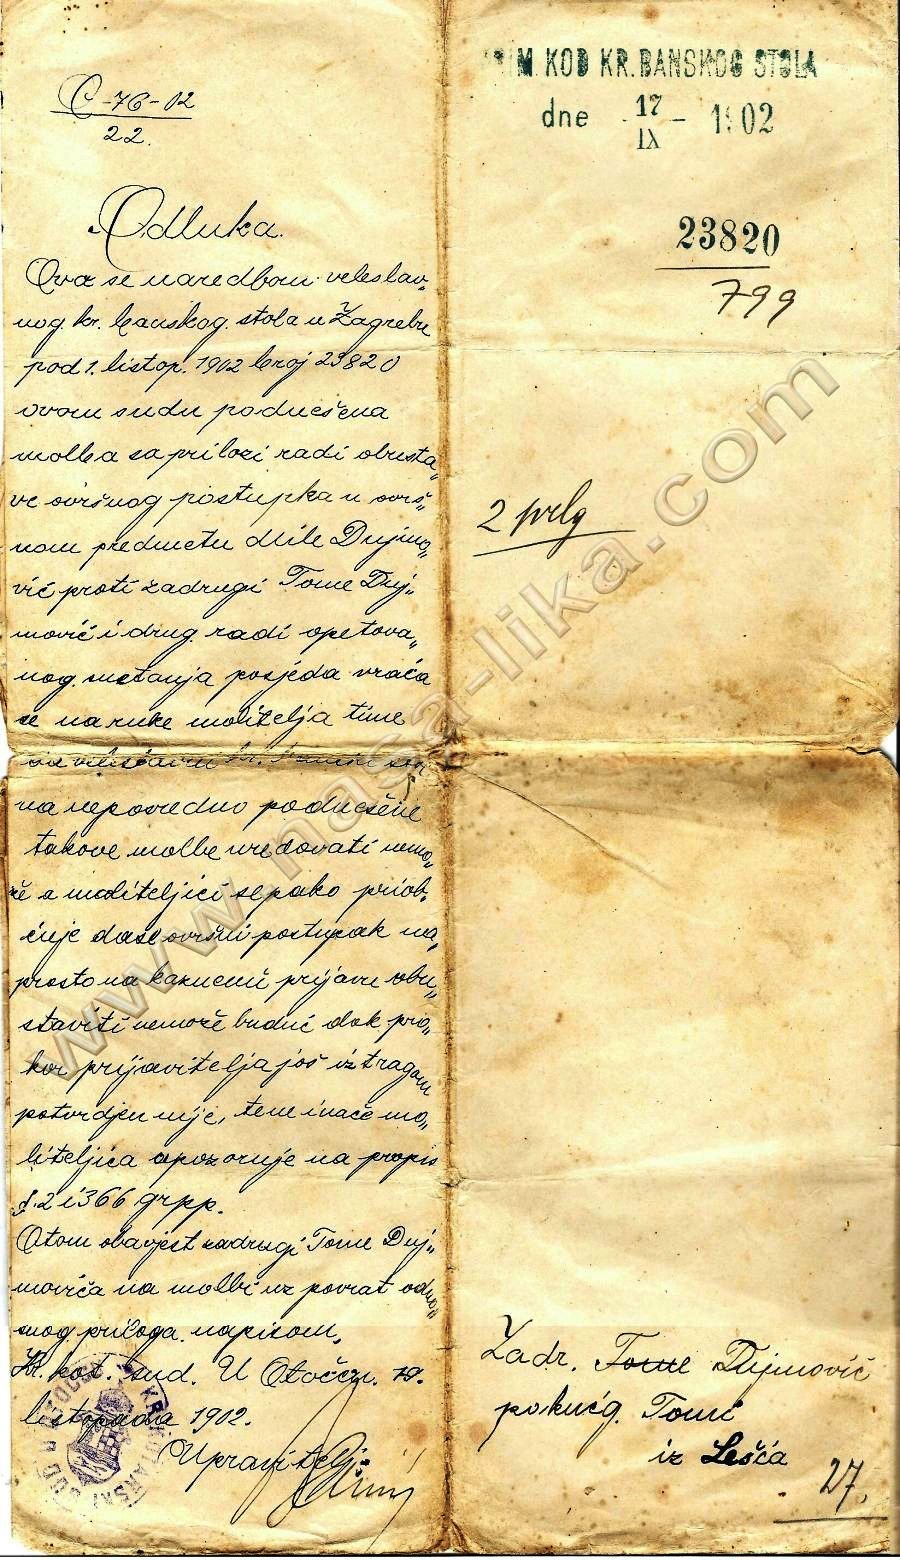 C-76-02
22.
Odluka.
Ova se naredbom veleslav„
nog. kr. banskog. stola u Zagrebu
pod 1. listop. 1902 broj 23820
ovom sudu podnešena
molba sa prilozi radi obusta„
ve ovršnog postupka u ovrš„
nom predmetu Mile Dujmo„
vić proti zadrugi Tome Duj„
mović i drug. radi opetova„
nog. smetanja posjeda vraća
se na ruke molitelja time
da
na neposredno podnešene
takove molbe uredovati nemo„
že a moliteljici se pako priob„
ćuje da se ovršni postupak na„
prosto na kaznenu prijavu obu„
staviti nemože budući dok pro„
kor prijavitelja još iztragom
potvrdjen nije, te ne inače mo„
liteljica upozoruje na propis
§. 2 i 366 grpp.
O tom obavjest zadrugi Tome Duj„
movića na molbi uz povrat odno„
snog. priloga. napisom.
Kr. kot. sud. U Otočcu. 19.
listopada 1902.
Upravitelj
PRIM. KOD KR. BANSKOG STOLA
dne 17/IX - 1902
23820
799
2 prlg
Zadr. Tome Dujmović
po kućg. Tomi
iz Lešća
27.
www.nasa-lika.com